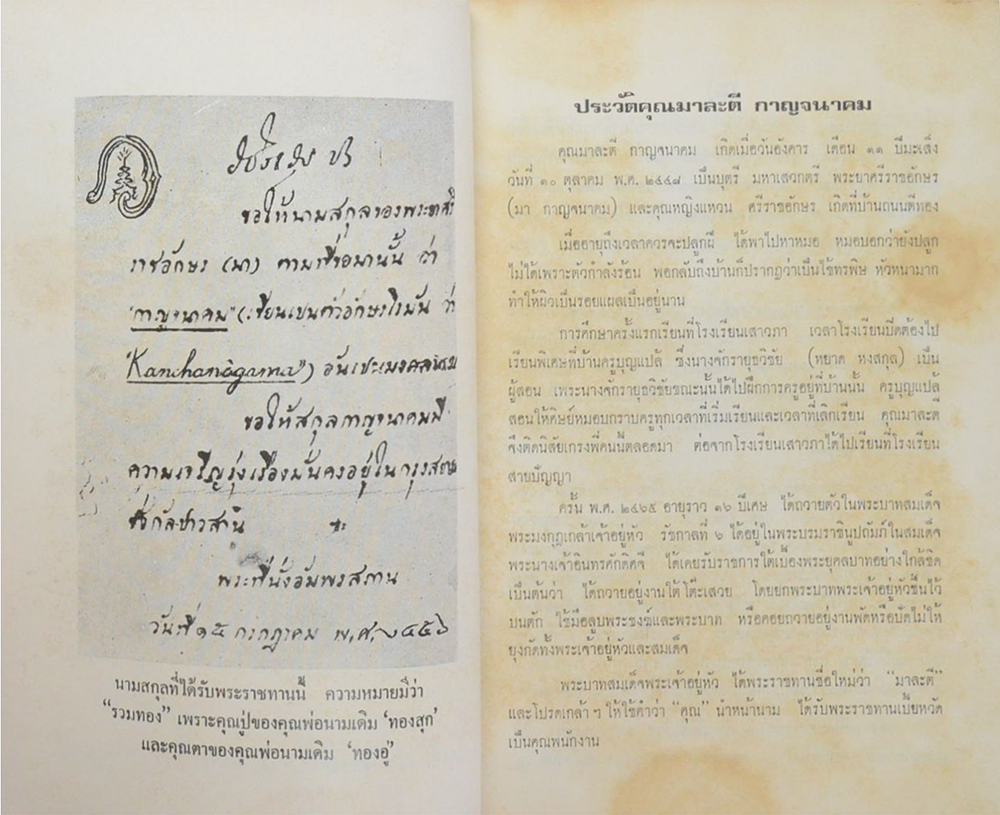 ขอให้นามสกุลของพระยาศรี
ราชอักษร (มา) ตามที่ขอมานั้น ว่า
"กาญจนาคม" (เขียนเปนตัวอักษรโรมัน ว่า
"Kanchanâgama") อันเปนมงคลนาม
ขอให้สกุลกาญจนาคมมี
ความเจริญรุ่งเรืองมั่นคงอยู่ในกรุงสยาม
ชั่วกัลปาวสาน
พระที่นั่งอัมพรสถาน
วันที่ ๑๕ กรกฎาคม พ.ศ. ๒๔๕๖
นามสกุลที่ได้รับพระราชทานนี้ ความหมายมีว่า
"รวมทอง" เพราะคุณปู่ของคุณพ่อนามเดิม 'ทองสุก'
และคุณตาของคุณพ่อนามเดิม 'ทองอู่'
ประวัติคุณมาละตี กาญจนาคม
คุณมาละตี กาญจนาคม เกิดเมื่อวันอังคาร เดือน ๑๑ ปีมะเส็ง
วันที่ ๑๐ ตุลาคม พ.ศ. ๒๔๔๘ เป็นบุตรี มหาเสวกตรี พระยาศรีราชอักษร
(มา กาญจนาคม) และคุณหญิงแหวน ศรีราชอักษร เกิดที่บ้านถนนตีทอง
เมื่ออายุถึงเวลาควรจะปลูกฝี ได้พาไปหาหมอ หมอบอกว่ายังปลูก
ไม่ได้เพราะตัวกำลังร้อน พอกลับถึงบ้านก็ปรากฏว่าเป็นไข้ทรพิษ หัวหนามาก
ทำให้ผิวเป็นรอยแผลเป็นอยู่นาน
การศึกษาครั้งแรกเรียนที่โรงเรียนเสาวภา เวลาโรงเรียนปิดต้องไป
เรียนพิเศษที่บ้านครูบุญแปลั ซึ่งนางจักรายุธวิชัย (หยาด หงสกุล) เป็น
ผู้สอน เพราะนางจักรายุธวิชัยขณะนั้นได้ไปฝึกการครูอยู่ที่บ้านนั้น ครูบุญแปลั
สอนให้ศิษย์หมอบกราบครูทุกเวลาที่เริ่มเรียนและเวลาที่เลิกเรียน คุณมาละตี
จึงติดนิสัยเกรงพี่คนนี้ตลอดมา ต่อจากโรงเรียนเสาวภาได้ไปเรียนที่โรงเรียน
สายปัญญา
ครั้น พ.ศ. ๒๔๖๕ อายุราว ๑๖ ปีเศษ ได้ถวายตัวในพระบาทสมเด็จ
พระมงกุฎเกล้าเจ้าอยู่หัว รัชกาลที่ ๖ ได้อยู่ในพระบรมราชินูปถัมภ์ในสมเด็จ
พระนางเจ้าอินทรศักดิศจี ได้เคยรับราชการใต้เบื้องพระยุคลบาทอย่างใกล้ชิด
เป็นต้นว่า ได้ถวายอยู่งานใต้โต๊ะเสวย โดยยกพระบาทพระเจ้าอยู่หัวขึ้นไว้
บนตัก ใช้มือลูบพระชงฆ์และพระบาท หรือคอยถวายอยู่งานพัดหรือปัดไม่ให้
ยุงกัดทั้งพระเจ้าอยู่หัวและสมเด็จ
พระบาทสมเด็จพระเจ้าอยู่หัว ได้พระราชทานชื่อใหม่ว่า "มาละตี"
และโปรดเกล้า ฯ ให้ใช้คำว่า "คุณ" นำหน้านาม ได้รับพระราชทานเบี้ยหวัด
เป็นคุณพนักงาน